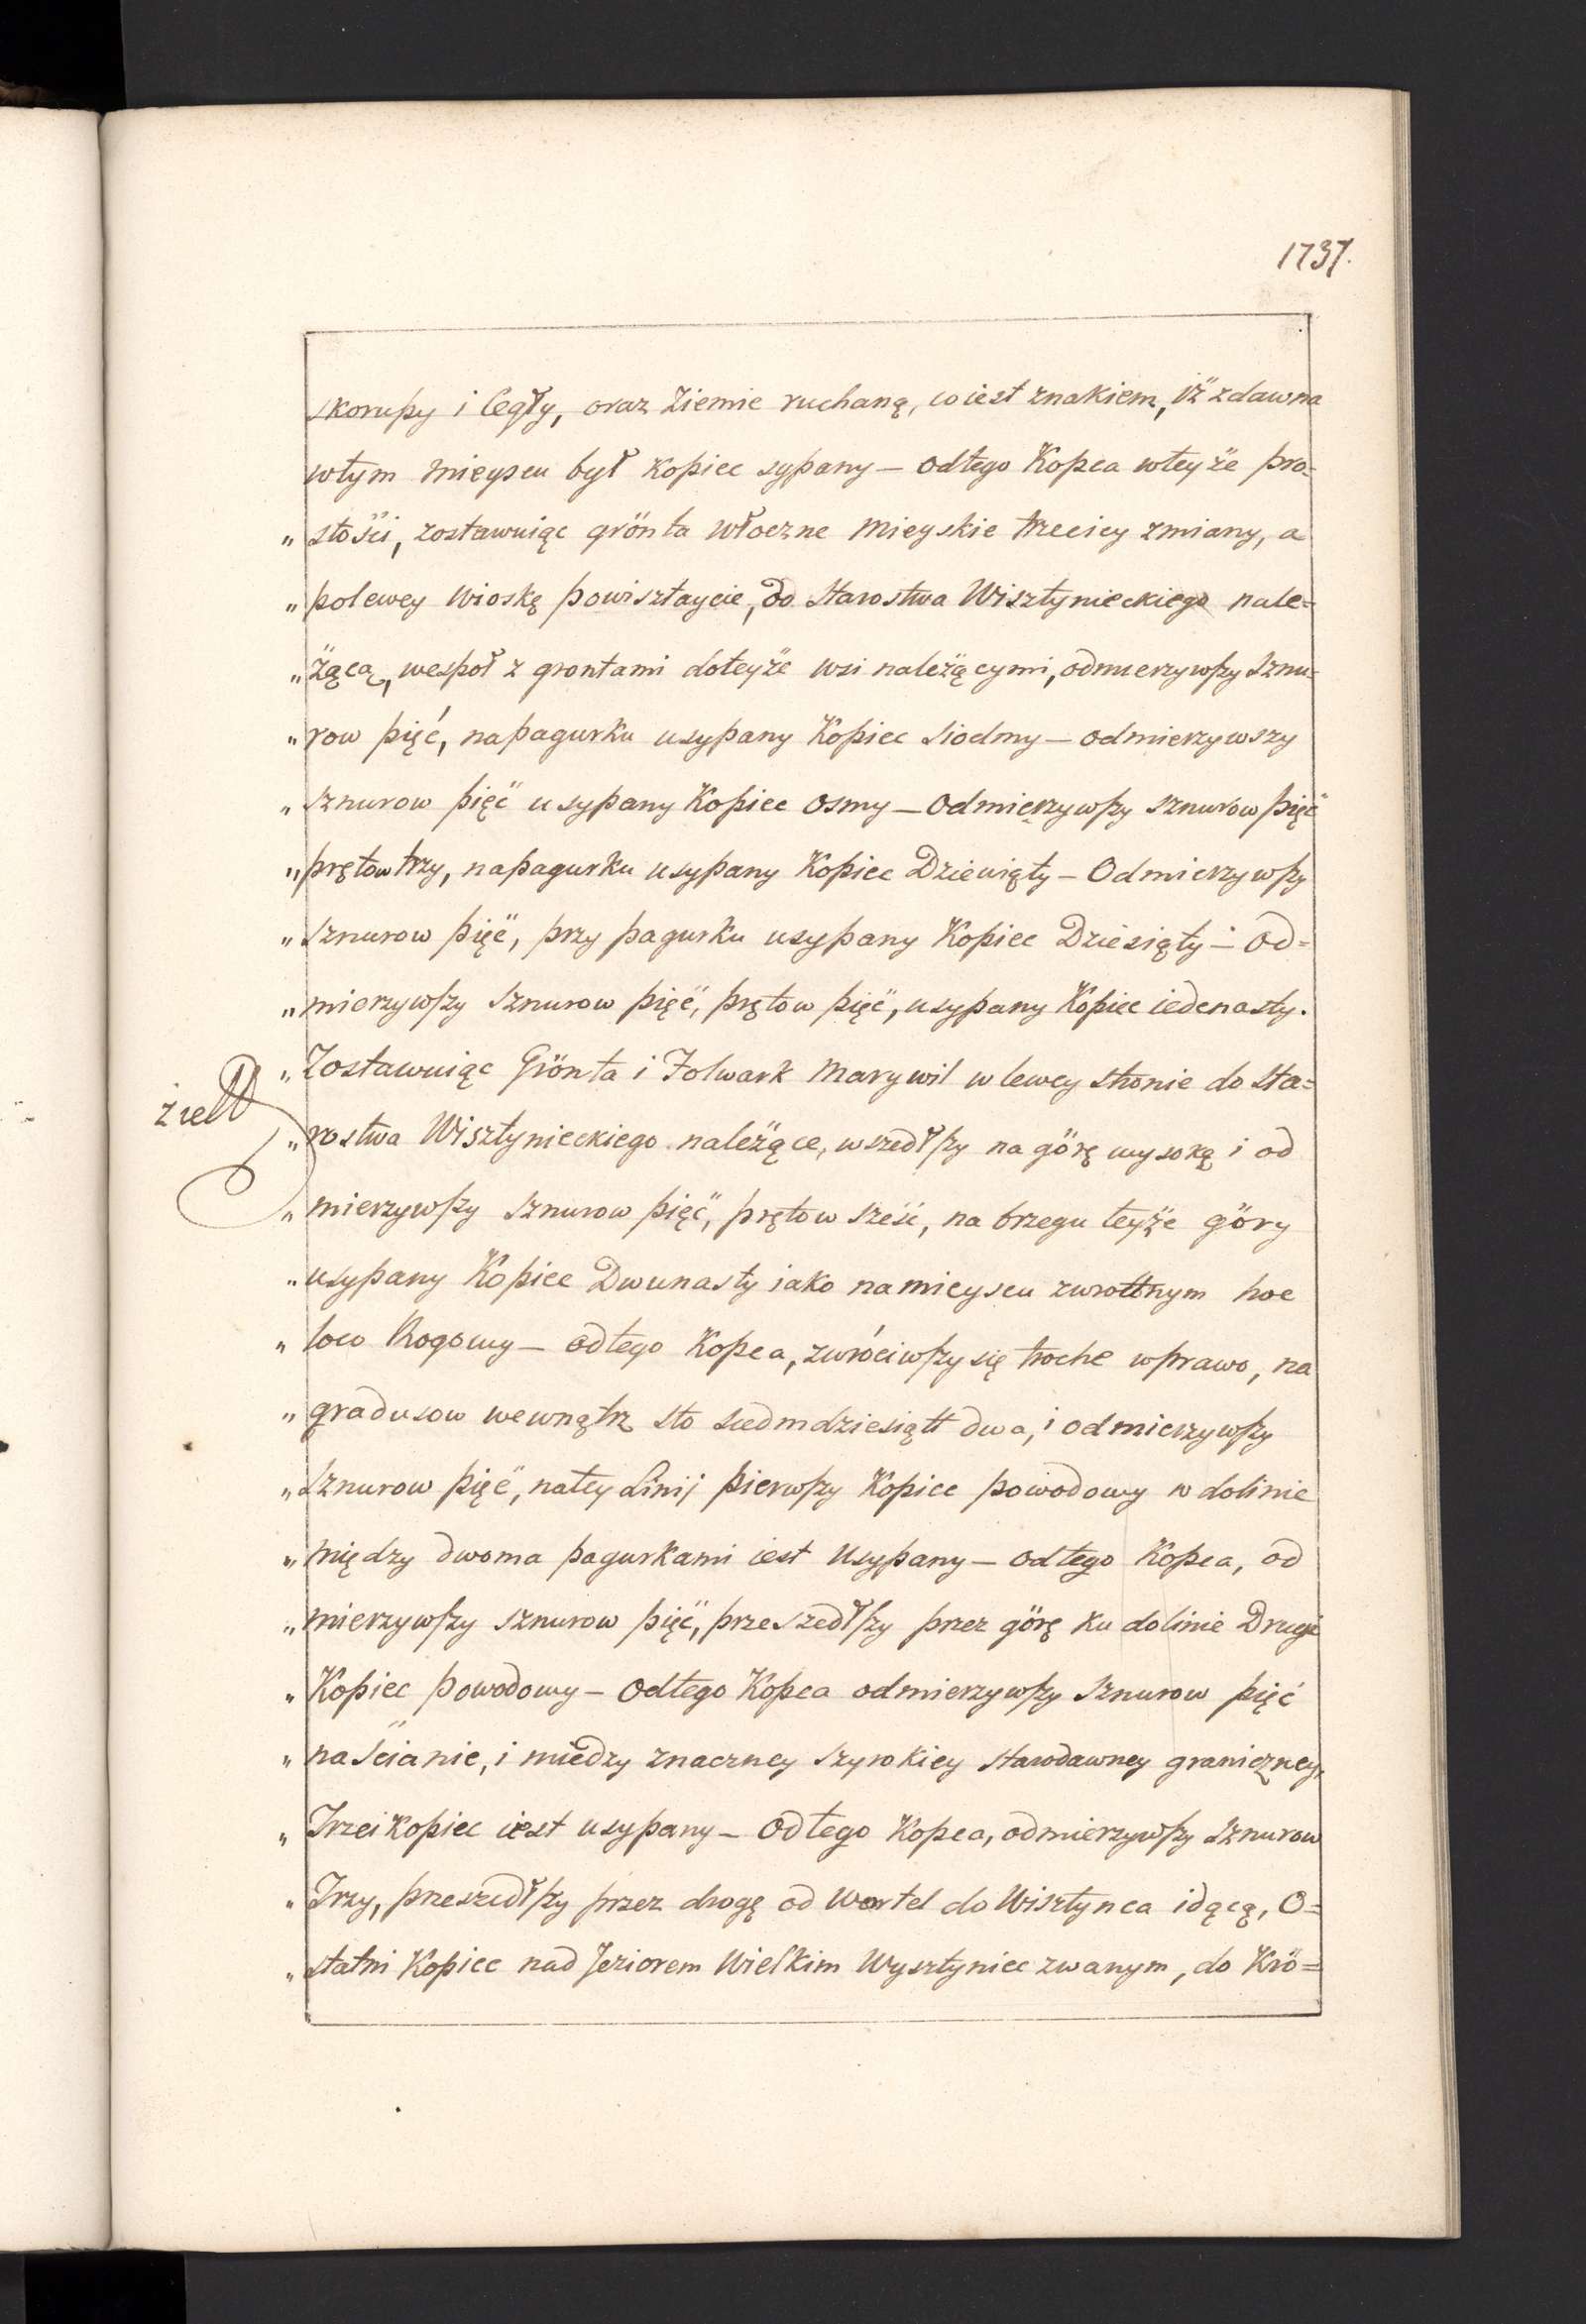 1737.
skorupy i Cegły, oraz Ziemie ruchaną, co iest znakiem, iż zdawna
wtym mieyscu był Kopiec sypany – odtego Kopca wteyże pro=
„ stości, zostawuiąc grönta włoczne Mieyskie trzeciey zmiany, a
„ polewey Wioskę powisztaycie, do Starostwa Wisztynieckiego nale=
„ żącą, wespoł z grontami doteyże wsi należącymi, odmierzywszy Sznu=
„ row pięć, napagurku usypany Kopiec Siodmy – odmierzywszy
„ Sznurow pięć usypany Kopiec osmy – Odmierzywszy sznurow pięć
„ prętow trzy, napagurku usypany Kopiec Dziewiąty – Odmierzywszy
„ Sznurow pięć, przy pagurku usypany Kopiec Dziesiąty – Od=
„ mierzywszy Sznurow pięć, prętow pięć, usypany Kopiec iedenasty.
„ Zostawuiąc Grönta i Folwark Marywil w lewey stronie do Sta=
„ rostwa Wisztynieckiego należące, wszedłszy na görę wysoką i od
„ mierzywszy Sznurow pięć, prętow sześć, na brzegu teyże göry
„ usypany Kopiec Dwunasty iako namieyscu zwrottnym hoc
„ loco Rogowy – odtego Kopca, zwróciwszy się troche wprawo, na
„ gradusow wewnątrz sto siedmdziesiątt dwa, i odmierzywszy
„ Sznurow pięć, natey Linij pierwszy Kopiec powodowy w dolinie
„ między dwoma pagurkami iest Usypany – odtego Kopca, od
„ mierzywszy sznurow pięć, przeszedłszy przez görę ku dolinie Drugi
„ Kopiec powodowy – Odtego Kopca odmierzywszy Sznurow pięć
„ naścianie, i miedzy znaczney szyrokiey starodawney graniczney,
„ Trzci Kopiec iest usypany – Odtego Kopca, odmierzywszy Sznurow
„ Trzy, przeszedłszy przez drogę od Wortel do Wisztynca idącą, O=
„ statni Kopiec nad Jeziorem Wielkim Wysztyniec zwanym, do Krö=